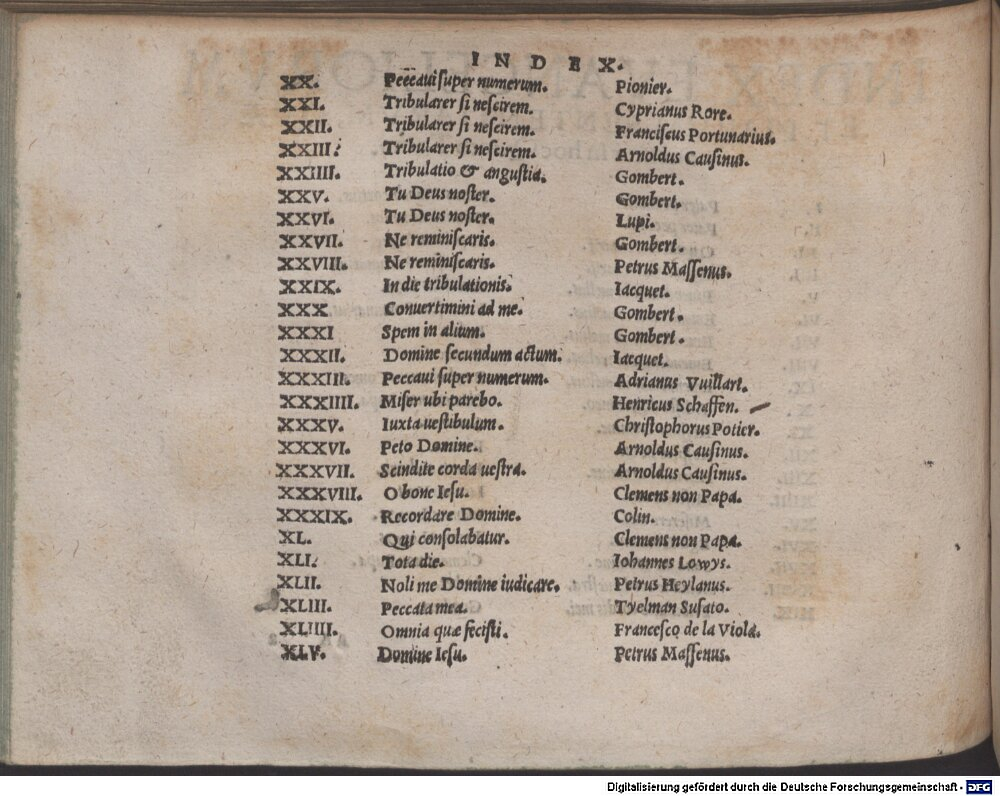 INDEX.
XX. Peccaui super numerum. Pionier.
XXI. Tribularer si nescirem. Cyprianus Rore.
XXII. Tribularer si nescirem. Franciscus Portunarius.
XXIII. Tribularer si nescirem. Arnoldus Causinus.
XXIIII. Tribulatio & angustia. Gombert.
XXV. Tu Deus noster. Gombert.
XXVI. Tu Deus noster. Lupi.
XXVII. Ne reminiscaris. Gombert.
XXVIII. Ne reminiscaris. Petrus Massenus.
XXIX. In die tribulationis. Iacquet.
XXX Conuertimini ad me. Gombert.
XXXI Spem in alium. Gombert.
XXXII. Domine secundum actum. Iacquet.
XXXIII. Peccaui super numerum. Adrianus Vuillart.
XXXIIII. Miser ubi parebo. Henricus Schaffen.
XXXV. Iuxta uestibulum. Christophorus Potier.
XXXVI. Peto Domine. Arnoldus Causinus.
XXXVII. Scindite corda uestra. Arnoldus Causinus.
XXXVIII. O bone Iesu. Clemens non Papa.
XXXIX. Recordare Domine. Colin.
XL. Qui consolabatur. Clemens non Papa.
XLI. Tota die. Iohannes Lowys.
XLII. Noli me Domine iudicare. Petrus Heylanus.
XLIII. Peccata mea. Tyelman Susato.
XLIIII. Omnia quæ fecisti. Francesco de la Viola.
XLV. Domine Iesu. Petrus Massenus.
Digitalisierung gefördert durch die Deutsche Forschungsgemeinschaft - DFG